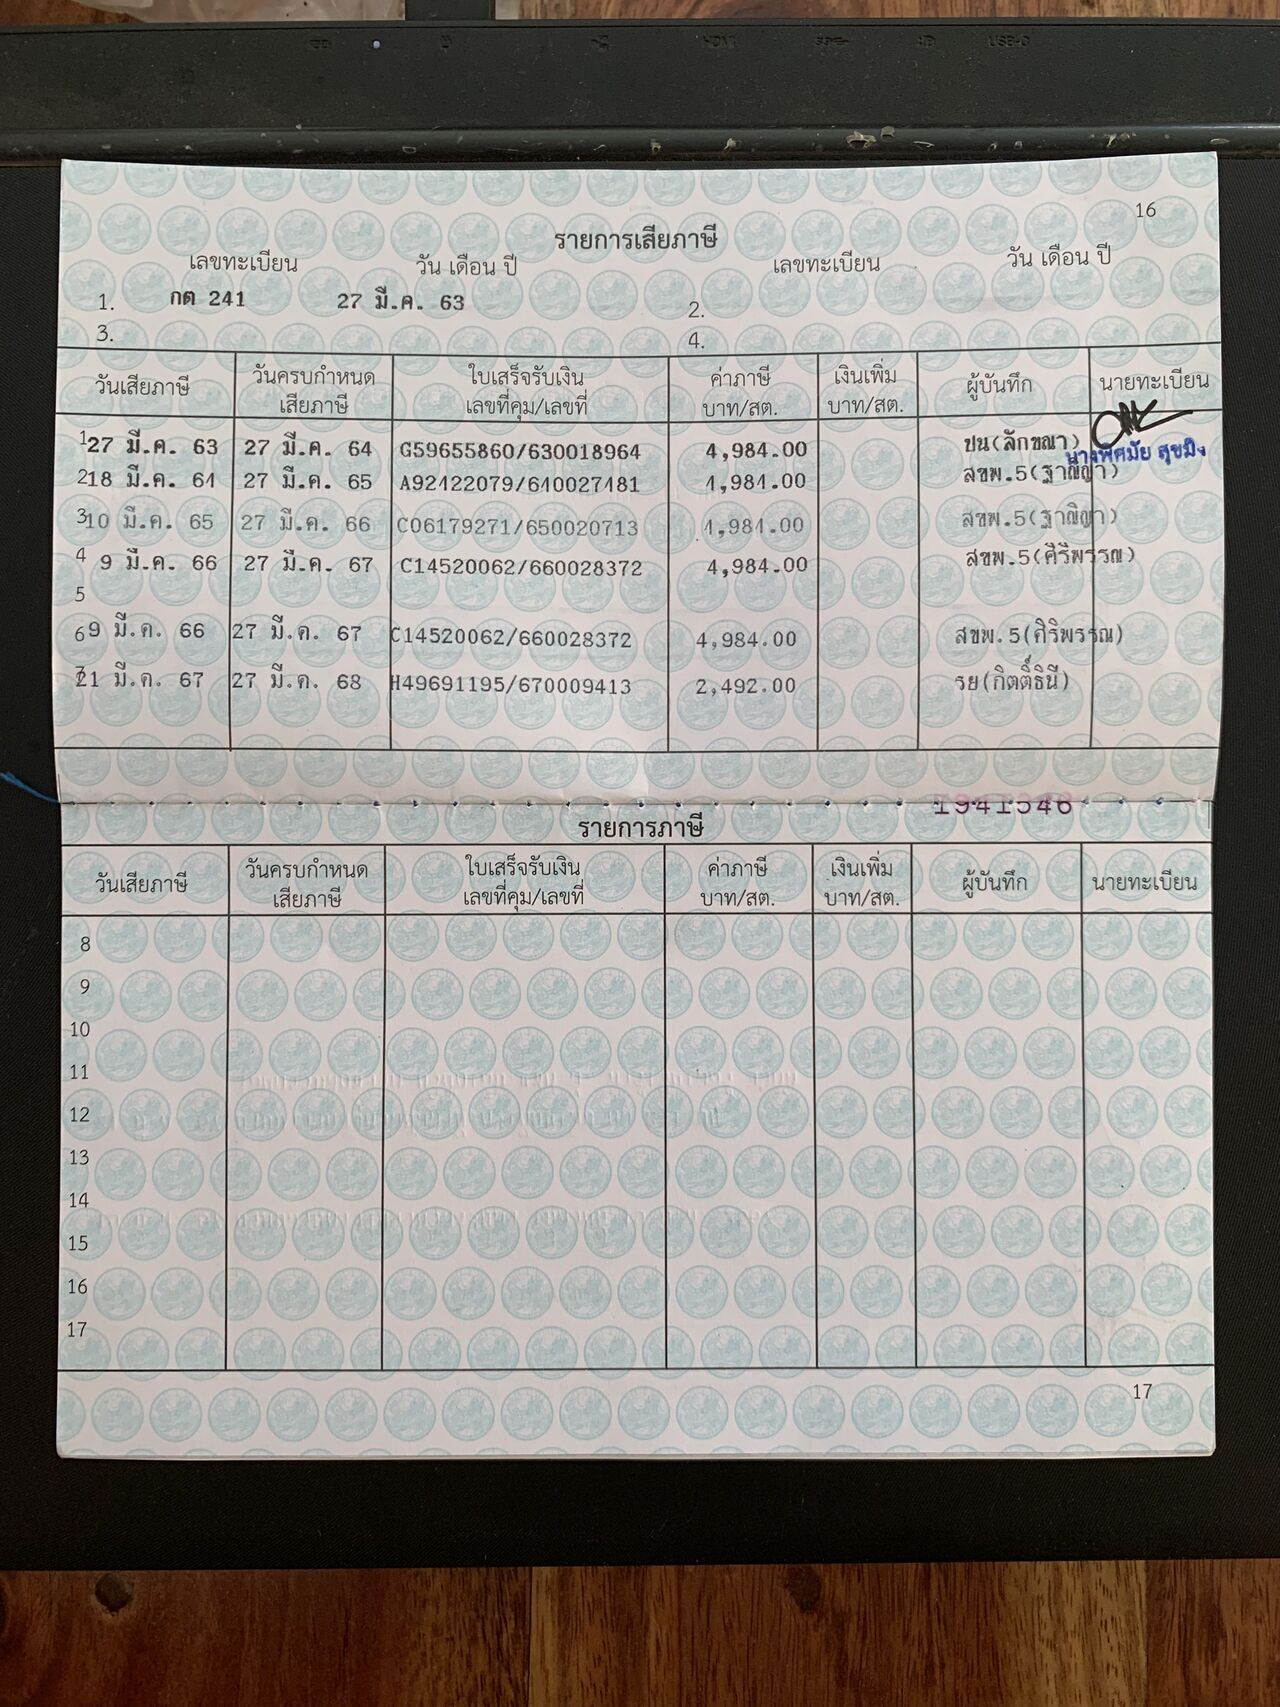 16
รายการเสียภาษี
เลขทะเบียน วัน เดือน ปี เลขทะเบียน วัน เดือน ปี
1. กต 241 27 มี.ค. 63 2.
3. 4.
วันเสียภาษี วันครบกำหนด เสียภาษี ใบเสร็จรับเงิน เลขที่คุม/เลขที่ ค่าภาษี บาท/สต. เงินเพิ่ม บาท/สต. ผู้บันทึก นายทะเบียน
1 27 มี.ค. 63 27 มี.ค. 64 G59655860/630018964 4,984.00 ปน(ลักขณา)
นางพิศมัย สุขมิ่ง
2 18 มี.ค. 64 27 มี.ค. 65 A92422079/640027481 4,984.00 สขพ.5(ฐาณิญา)
3 10 มี.ค. 65 27 มี.ค. 66 C06179271/650020713 4,984.00 สขพ.5(ฐาณิญา)
4 9 มี.ค. 66 27 มี.ค. 67 C14520062/660028372 4,984.00 สขพ.5(ศิริพรรณ)
5
6 9 มี.ค. 66 27 มี.ค. 67 C14520062/660028372 4,984.00 สขพ.5(ศิริพรรณ)
7 21 มี.ค. 67 27 มี.ค. 68 H49691195/670009413 2,492.00 รย(กิตติ์ธินี)
1941546
รายการภาษี
วันเสียภาษี วันครบกำหนด เสียภาษี ใบเสร็จรับเงิน เลขที่คุม/เลขที่ ค่าภาษี บาท/สต. เงินเพิ่ม บาท/สต. ผู้บันทึก นายทะเบียน
8
9
10
11
12
13
14
15
16
17
17